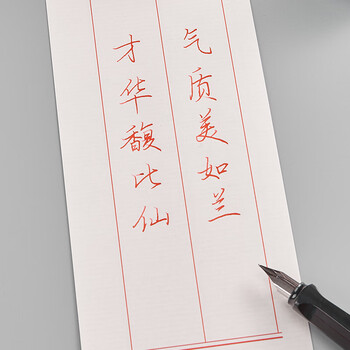 气质美如兰
才华馥比仙